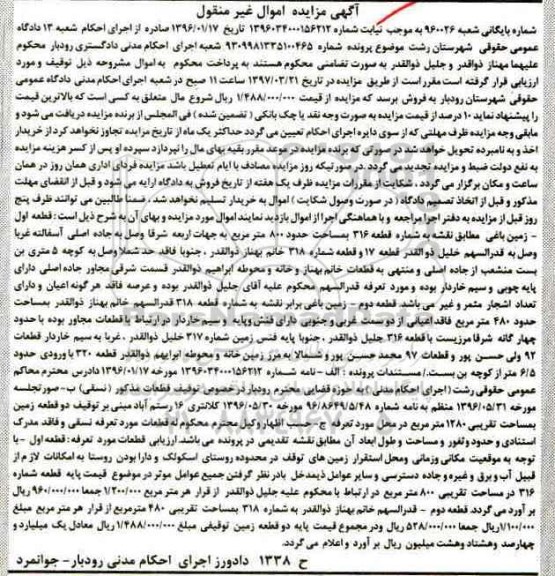 آگهی مزایده اموال غیر منقول
شماره بایگانی شعبه ۹۶۰۰۲۶ به موجب نیابت شماره ۱۳۹۶۰۳۴۰۰۰۱۵۶۲۱۲ تاریخ ۱۳۹۶/۰۱/۱۷ صادره از اجرای احکام شعبه ۱۳ دادگاه
عمومی حقوقی شهرستان رشت موضوع پرونده شماره ۹۳۰۹۹۸۱۳۳۵۱۰۰۴۶۵ شعبه اجرای احکام مدنی دادگستری رودبار محکوم
علیهما مهناز ذوالقدر و جلیل ذوالقدر به صورت تضامنی محکوم هستند به پرداخت محکوم به اموال مشروحه ذیل توقیف و مورد
ارزیابی قرار گرفته است مقرر است از طریق مزایده در تاریخ ۱۳۹۷/۰۳/۲۱ ساعت ۱۱ صبح در شعبه اجرای احکام مدنی دادگاه عمومی
حقوقی شهرستان رودبار به فروش برسد که مزایده از قیمت ۱/۴۸۸/۰۰۰/۰۰۰ ریال شروع مال متعلق به کسی است که بالاترین قیمت
را پیشنهاد نماید ۱۰ درصد از قیمت مزایده به صورت وجه نقد یا چک بانکی ( تضمین شده ) فی المجلس از برنده مزایده دریافت می شود و
مابقی وجه مزایده ظرف مهلتی که از سوی دایره اجرای احکام تعیین می گردد حداکثر یک ماه از تاریخ مزایده تجاوز نخواهد کرد از خریدار
اخذ و به نامبرده تحویل خواهد شد در صورتی که برنده مزایده در موعد مقرر بقیه بهای مال را نپردازد سپرده او پس از کسر هزینه مزایده
به نفع دولت ضبط و مزایده تجدید می گردد .در صورتیکه روز مزایده مصادف با ایام تعطیل باشد مزایده فردای اداری همان روز در همان
ساعت و مکان برگزار می گردد ، شکایت از مقررات مزایده ظرف یک هفته از تاریخ فروش به دادگاه ارایه می شود و قبل از انقضای مهلت
مذکور و قبل از اتخاذ تصمیم دادگاه ( در صورت وصول شکایت ) اموال به خریدار تسلیم نخواهد شد، ضمنا طالبین می توانند ظرف پنج
روز قبل از مزایده به دفتر اجرا مراجعه و با هماهنگی اجرا از اموال بازدید نمایند اموال مورد مزایده و بهای آن به شرح ذیل است : قطعه اول
- زمین باغی مطابق نقشه به شماره قطعه ۳۱۶ بمساحت حدود ۸۰۰ متر مربع به جهات اربعه شرقا وصل به جاده اصلی آسفالته غربا
وصل به قدرالسهم خلیل ذوالقدر قطعه ۱۷ و قطعه شماره ۳۱۸ خانم بهناز ذوالقدر ، جنوبا فاقد حد شمالا وصل به کوچه ۵ متری بن
بست منشعب از جاده اصلی و منتهی به قطعات خانم بهناز و خانه و محوطه ابراهیم ذوالقدر قسمت شرقی مجاور جاده اصلی دارای
پایه چوبی و سیم خاردار بوده و مورد تعرفه قدرالسهم محکوم علیه آقای جلیل ذوالقدر بوده و عرصه فاقد هر گونه اعیان و دارای
تعداد اشجار مثمر و غیر می باشد قطعه دوم - زمین باغی برابر نقشه به شماره قطعه ۳۱۸ قدرالسهم خانم بهناز ذوالقدر بمساحت
حدود ۴۸۰ متر مربع فاقد اعیانی از دو سمت غربی و جنوبی دارای فنس وپایه و سیم خاردار در ارتباط با قطعات مجاور بوده با حدود
چهار گانه شرقا مرزیست با قطعه ۳۱۶ جلیل ذوالقدر ، جنوبا پایه فنس زمین شماره ۳۱۷ خلیل ذوالقدر ، غربا به سیم خاردار قطعات
۹۲ ولی حسن پور و قطعات ۹۷ محمد حسن پور و شمالا به مرز زمین خانه و محوطه ابراهیم ذوالقدر قطعه ۳۲۰ با ورودی حدود
۶/۵ متر از کوچه بن بست./ مستندات پرونده : الف - نامه شماره ۱۳۹۶۰۳۴۰۰۰۱۵۶۲۱۲ مورخه ۱۳۹۶/۰۱/۱۷ دادرس محترم محاکم
عمومی حقوقی رشت (اجرای احکام مدنی ) به حوزه قضایی محترم رودبار در خصوص توقیف قطعات مذکور (نسقی) ب- صورتجلسه
مورخه ۱۳۹۶/۰۵/۳۱ منظم به نامه شماره ۹۶/۸۶۴۹/۵/۴۸ مورخه ۱۳۹۶/ کلانتری ۱۶ رستم آباد مبنی بر توقیف دو قطعه زمین
بمساحت تقریبی ۱۲۸۰ متر مربع در محل مورد تعرفه ج- حسب اظهار وکیل محترم محکوم له قطعات مورد تعرفه نسقی و فاقد مدرک
استنادی و حدود و ثغور و مساحت و طول ابعاد آن مطابق نقشه تقدیمی در پرونده می باشد. ارزیابی قطعات مورد تعرفه : قطعه اول - با
توجه به موقعیت مکانی وزمانی ومحل استقرار زمین های توقف در محدوده روستای اسکولک و دارا بودن روستا به امکانات لازم از
قبیل آب و برق و غیره و جاده دسترسی و سایر عوامل ذیمدخل بادر نظر گرفتن جمیع عوامل موثر در موضوع قیمت پایه قطعه شماره
۳۱۶ در مساحت تقریبی ۸۰۰ متر مربع در ارتباط با محکوم علیه جلیل ذوالقدر از قرار هر متر مربع ۱/۲۰۰/۰۰۰ جمعا ۹۶۰/۰۰۰/۰۰۰ ریال
بر آورد می گردد. قطعه دوم - قدرالسهم خانم بهناز ذوالقدر به شماره ۳۱۸ بمساحت تقریبی ۴۸۰ مترمربع از قرار هر متر مربع مبلغ
۱/۱۰۰/۰۰۰ریال جمعا ۵۲۸/۰۰۰/۰۰۰ ریال ودر مجموع قیمت پایه دو قطعه زمین توقیفی مبلغ ۱/۴۸۸/۰۰۰/۰۰۰ ریال معادل یک میلیارد و
چهارصد وهشتاد وهشت میلیون ریال بر آورد و اعلام می گردد.
ح ۱۳۳۸ دادورز اجرای احکام مدنی رودبار- جوانمرد